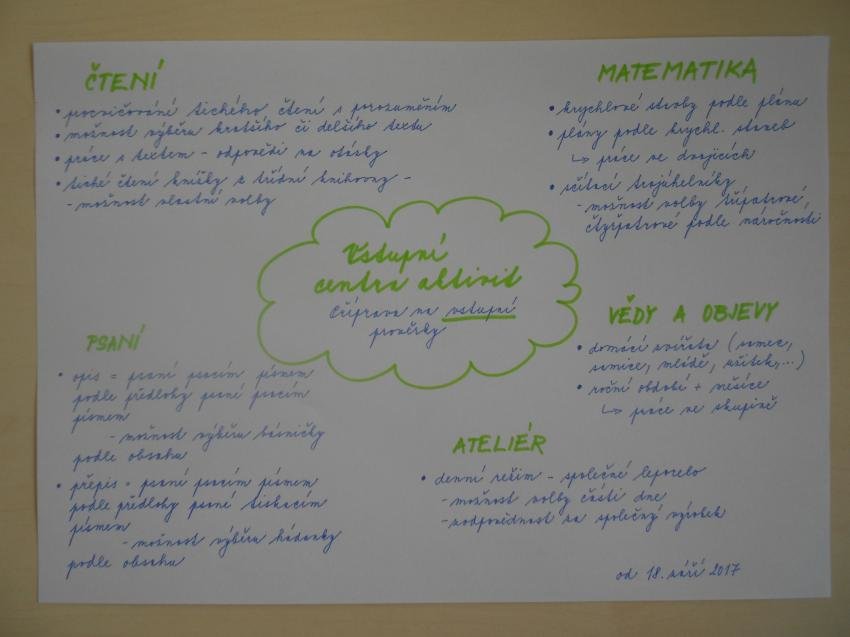 ČTENÍ
• procvičování tichého čtení s porozuměním
• možnost výběru kratšího či delšího textu
• práce s textem - odpovědi na otázky
• tiché čtení knížky z třídní knihovny -
- možnost vlastní volby
MATEMATIKA
• krychlové stavby podle plánu
• plány podle krychl. staveb
↳ práce ve dvojicích
• sčítací trojúhelníky
- možnost volby třípatrové,
čtyřpatrové podle náročnosti
Vstupní
centra aktivit
Příprava na vstupní
prověrky
PSANÍ
• opis = psaní psacím písmem
podle předlohy psané psacím
písmem
- možnost výběru básničky
podle obsahu
• přepis = psaní psacím písmem
podle předlohy psané tiskacím
písmem
- možnost výběru hádanky
podle obsahu
VĚDY A OBJEVY
• domácí zvířata (samec,
samice, mládě, užitek,...)
• roční období + měsíce
↳ práce ve skupině
ATELIÉR
• denní režim - společné leporelo
- možnost volby části dne
- zodpovědnost za společný výrobek
od 18. září 2017